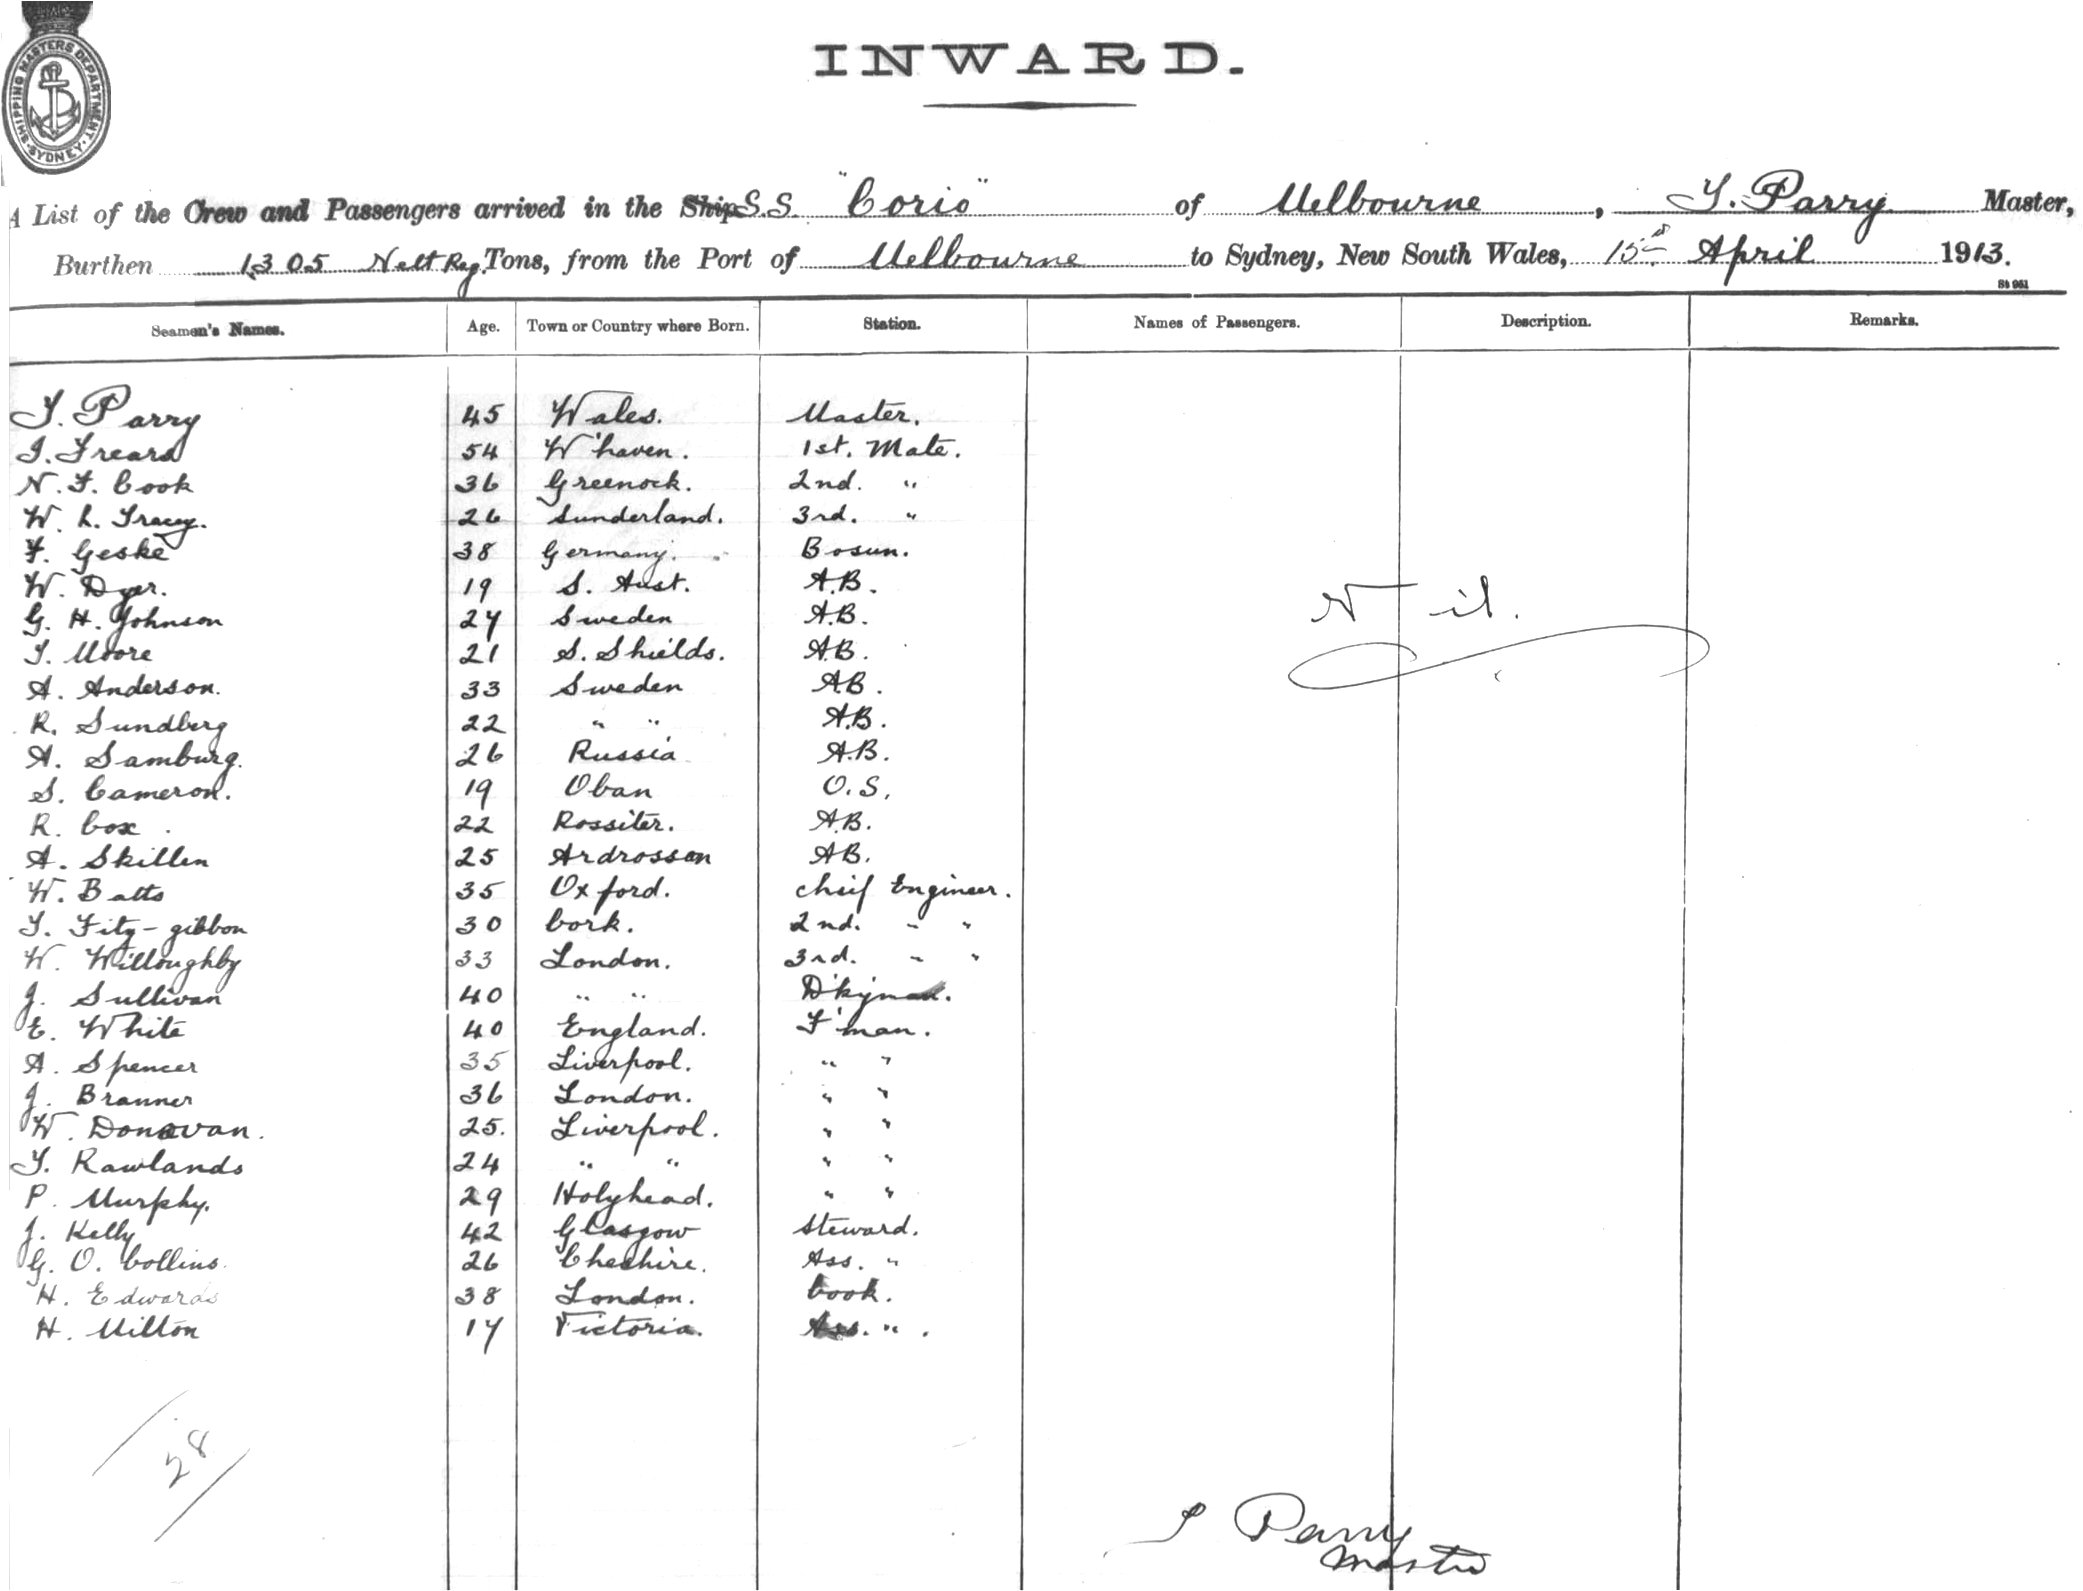 SHIPPING MASTERS DEPARTMENT. SYDNEY.
INWARD.
A List of the Crew and Passengers arrived in the Ship S.S. "Corio" of Melbourne, T. Parry Master,
Burthen 1305 Nett Reg. Tons, from the Port of Melbourne to Sydney, New South Wales, 15th April 1913.
St 961
Seamen's Names. Age. Town or Country where Born. Station. Names of Passengers. Description. Remarks.
T. Parry 45 Wales. Master.
J. Freard 54 W'haven. 1st. Mate.
N. F. Cook 36 Greenock. 2nd. "
W. L. Tracey. 26 Sunderland. 3rd. "
F. Geske 38 Germany. Bosun.
W. Dyer. 19 S. Aust. A.B.
G. H. Johnson 27 Sweden A.B.
T. Moore 21 S. Shields. A.B.
A. Anderson. 33 Sweden A.B.
R. Sundberg 22 " " A.B.
A. Samburg. 26 Russia A.B.
S. Cameron. 19 Oban O.S.
R. Cox. 22 Rossiter. A.B.
A. Skillen 25 Ardrossan A.B.
W. Batts 35 Oxford. Cheif Engineer.
T. Fitz-gibbon 30 Cork. 2nd. " "
W. Willoughby 33 London. 3rd. " "
J. Sullivan 40 " " D'kyman.
E. White 40 England. F'man.
A. Spencer 35 Liverpool. " "
J. Branner 36 London. " "
W. Donovan. 25. Liverpool. " "
T. Rawlands 24 " " " "
P. Murphy. 29 Holyhead. " "
J. Kelly 42 Glasgow Steward.
G. O. Collins. 26 Cheshire. Ass. "
H. Edwards 38 London. Cook.
H. Milton 17 Victoria. Ass. ".
Nil.
28
T Parry
Master